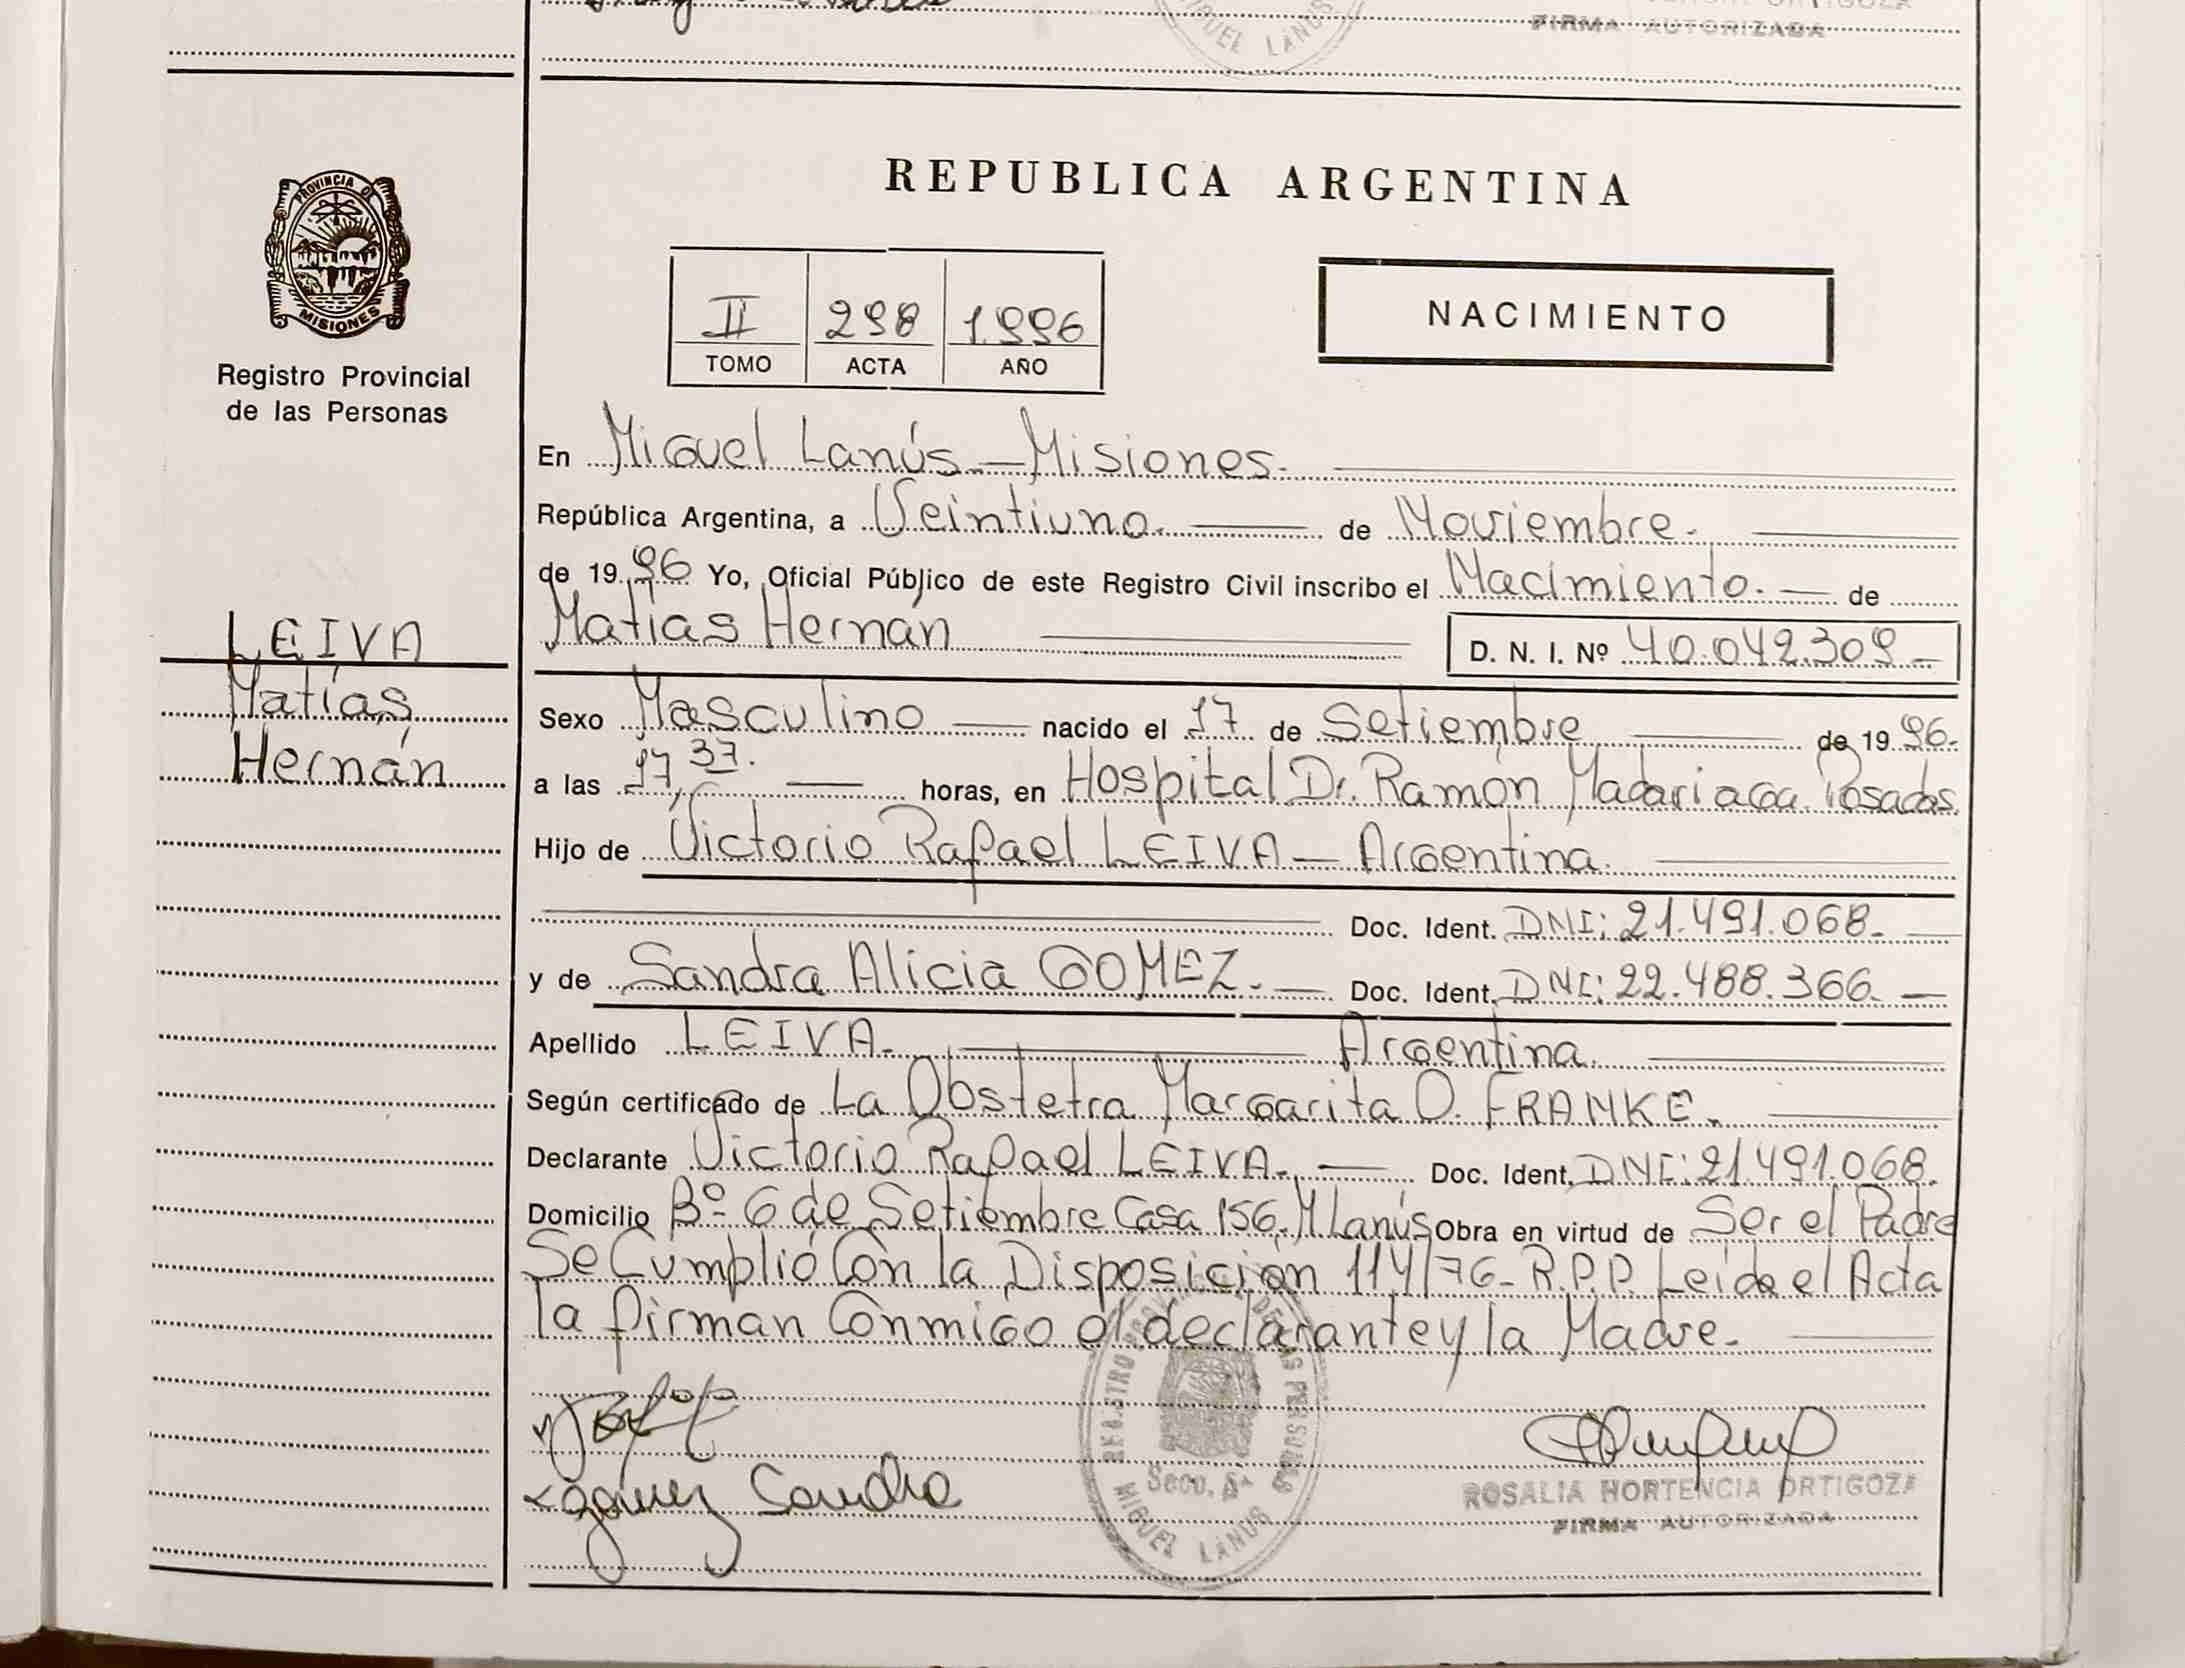 MIGUEL LANUS
FIRMA AUTORIZADA
PROVINCIA DE
MISIONES
Registro Provincial
de las Personas
REPUBLICA ARGENTINA
II 298 1.996
TOMO ACTA AÑO
NACIMIENTO
LEIVA
Matías
Hernán
En Miguel Lanús - Misiones.
República Argentina, a Veintiuno. de Noviembre.
de 19 96 Yo, Oficial Público de este Registro Civil inscribo el Nacimiento. de
Matías Hernán D. N. I. Nº 40.042.309
Sexo Masculino nacido el 17 de Setiembre de 19 96.
a las 17,37. horas, en Hospital Dr. Ramón Madariaga. Posadas
Hijo de Victorio Rafael LEIVA - Argentina.
Doc. Ident. DNI: 21.491.068.
y de Sandra Alicia GOMEZ. Doc. Ident. DNI: 22.488.366.
Apellido LEIVA. Argentina.
Según certificado de La Obstetra Margarita O. FRANKE.
Declarante Victorio Rafael LEIVA. Doc. Ident. DNI: 21.491.068.
Domicilio Bº 6 de Setiembre Casa 156. M Lanús Obra en virtud de Ser el Padre
Se Cumplió Con la Disposición 114/76- R.P.P. Leída el Acta
la firman Conmigo el declarante y la Madre.
REGISTRO PROVINCIAL DE LAS PERSONAS
Secc. 5ª
MIGUEL LANUS
Gomez Sandra
ROSALIA HORTENCIA ORTIGOZA
FIRMA AUTORIZADA